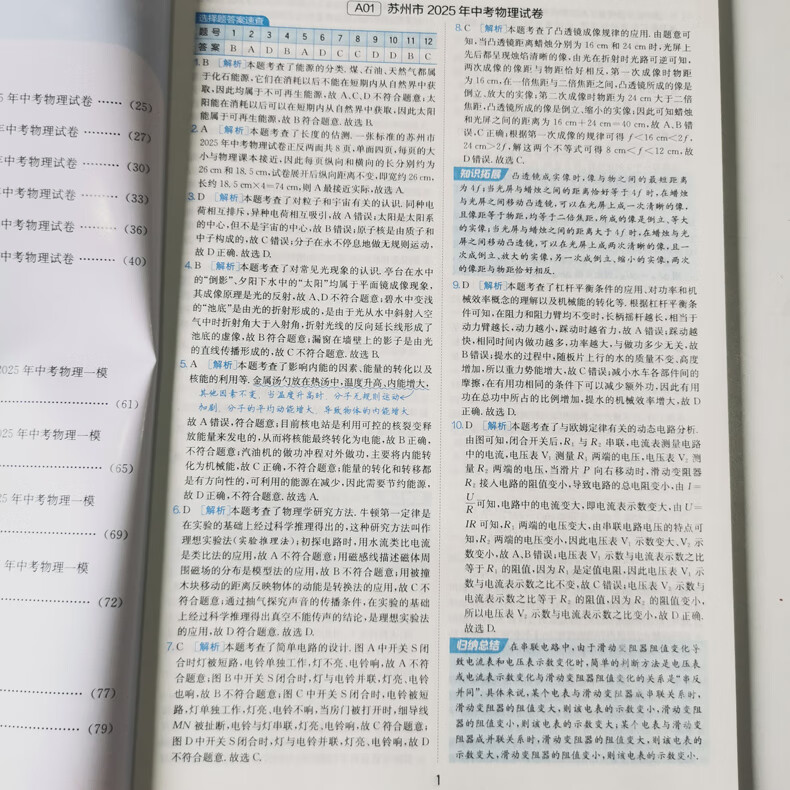 5 年中考物理试卷 …… (25)
年中考物理试卷 ……… (27)
年中考物理试卷 ……… (30)
年中考物理试卷 ……… (33)
年中考物理试卷 ……… (36)
年中考物理试卷 ……… (40)
2025 年中考物理一模
(61)
025 年中考物理一模
(65)
5 年中考物理一模
(69)
年中考物理一模
(72)
(77)
(79)
A01 苏州市 2025 年中考物理试卷
选择题答案速查
题号 1 2 3 4 5 6 7 8 9 10 11 12
答案 B A D B A D C C D D B C
1. B [解析]本题考查了能源的分类. 煤、石油、天然气都属
于化石能源,它们在消耗以后不能在短期内从自然界中获
取,因此均属于不可再生能源,故 A、C、D 不符合题意;太
阳能在消耗以后可以在短期内从自然界中获取,因此太阳
能属于可再生能源,故 B 符合题意. 故选 B.
2. A [解析]本题考查了长度的估测. 一张标准的苏州市
2025 年中考物理试卷正反两面共 8 页,单面四页,每页的大
小与物理课本接近,因此每页纵向和横向的长分别约为
26 cm 和 18. 5 cm,试卷展开后纵向距离不变,即宽约 26 cm,
长约 18. 5 cm×4=74 cm,则 A 最接近实际,故选 A.
3. D [解析]本题考查了对粒子和宇宙有关的认识. 同种电
荷相互排斥,异种电荷相互吸引,故 A 错误;太阳是太阳系
的中心,但不是宇宙的中心,故 B 错误;原子核是由质子和
中子构成的,故 C 错误;分子在永不停息地做无规则运动,
故 D 正确. 故选 D.
4. B [解析]本题考查了对常见光现象的认识. 亭台在水中
的“倒影”、夕阳下水中的“太阳”均属于平面镜成像现象,
其成像原理是光的反射,故 A、D 不符合题意;碧水中变浅
的“池底”是由光的折射形成的,是由于光从水中斜射入空
气中时折射角大于入射角,折射光线的反向延长线形成了
池底的虚像,故 B 符合题意;漏窗在墙壁上的影子是由光
的直线传播形成的,故 C 不符合题意. 故选 B.
5. A [解析]本题考查了影响内能的因素、能量的转化以及
核能的利用等. 金属汤勺放在热汤中,温度升高、内能增大,
其他因素不变,当温度升高时,分子无规则运动
加剧,分子的平均动能增大,导致物体的内能增大
故 A 错误,符合题意;目前核电站是利用可控的核裂变释
放能量来发电的,从而将核能最终转化为电能,故 B 正确,
不符合题意;汽油机的做功冲程对外做功,主要将内能转
化为机械能,故 C 正确,不符合题意;能量的转化和转移都
是有方向性的,可利用的能源在减少,因此需要节约能源,
故 D 正确,不符合题意. 故选 A.
6. D [解析]本题考查了物理学研究方法. 牛顿第一定律是
在实验的基础上经过科学推理得出的,这种研究方法叫作
理想实验法(实验推理法);初探电路时,用水流类比电流
是类比法的应用,故 A 不符合题意;用磁感线描述磁体周
围磁场的分布是模型法的应用,故 B 不符合题意;用被撞
木块移动的距离反映物体的动能是转换法的应用,故 C 不
符合题意;通过抽气探究声音的传播条件,在实验的基础
上经过科学推理得出真空不能传声的结论,是理想实验法
的应用,故 D 符合题意. 故选 D.
7. C [解析]本题考查了简单电路的设计. 图 A 中开关 S 闭
合时灯被短路,电铃单独工作,灯不亮、电铃响,故 A 不符
合题意;图 B 中开关 S 闭合时,灯与电铃并联,灯亮、电铃
也响,故 B 不符合题意;图 C 中开关 S 闭合时,电铃被短
路,灯单独工作,灯亮、电铃不响,当房门被打开时,细导线
MN 被扯断,电铃与灯串联,灯亮、电铃响,故 C 符合题意;
图 D 中开关 S 闭合时,灯与电铃并联,灯亮、电铃响,故 D
不符合题意. 故选 C.
8. C [解析]本题考查了凸透镜成像规律的应用. 由题意可
知,当凸透镜距离蜡烛分别为 16 cm 和 24 cm 时,光屏上
先后都呈现烛焰清晰的像,由光在折射时光路可逆可知,
两次成像的像距与物距恰好相反. 第一次成像时物距
为 16 cm,在一倍焦距与二倍焦距之间,凸透镜所成的像是
倒立、放大的实像;第二次成像时物距为 24 cm 大于二倍
焦距,凸透镜所成的像是倒立、缩小的实像;因此可知蜡烛
和光屏之间的距离为 16 cm+24 cm=40 cm,故 A、B 错
误、C 正确;根据第一次成像的规律可得 f<16 cm<2f,
24 cm>2f,解这两个不等式可得 8 cm<f<12 cm,故
D 错误. 故选 C.
知识拓展 凸透镜成实像时,像与物之间的最短距离
为 4f;当光屏与蜡烛之间的距离恰好等于 4f 时,在蜡烛
与光屏之间移动凸透镜,可以在光屏上成一次清晰的像,
且像距等于物距,均等于二倍焦距,所成的像是倒立、等大
的实像;当光屏与蜡烛之间的距离大于 4f 时,在蜡烛与光
屏之间移动凸透镜,可以在光屏上成两次清晰的像,且一
次成倒立、放大的实像,另一次成倒立、缩小的实像,两次
的像距与物距恰好相反.
9. D [解析]本题考查了杠杆平衡条件的应用、对功率和机
械效率概念的理解以及机械能的转化等. 根据杠杆平衡条
件可知,在阻力和阻力臂均不变时,长柄摇杆越长,相当于
动力臂越长,动力越小,踩动时越省力,故 A 错误;踩动越
快,相同时间内做功越多,功率越大,与做功多少无关,故
B 错误;提水的过程中,随板片上行的水的质量不变、高度
增加,所以重力势能增大,故 C 错误;减小水车各部件间的
摩擦,在有用功相同的条件下可以减少额外功,因此有用
功在总功中所占的比例增加,提水的机械效率增大,故 D
正确. 故选 D.
10. D [解析]本题考查了与欧姆定律有关的动态电路分析.
由图可知,闭合开关后,R₁ 与 R₂ 串联,电流表测量电路
中的电流,电压表 V₁ 测量 R₁ 两端的电压,电压表 V₂ 测
量 R₂ 两端的电压,当滑片 P 向右移动时,滑动变阻器
R₂ 接入电路的阻值变小,导致电路的总电阻变小,由 I=
U/R 可知,电路中的电流变大,即电流表示数变大,由 U=
IR 可知,R₁ 两端的电压变大,由串联电路电压的特点可
知,R₂ 两端的电压变小,因此电压表 V₁ 示数变大、V₂ 示
数变小,故 A、B 错误;电压表 V₁ 示数与电流表示数之比
等于 R₁ 的阻值,因为 R₁ 是定值电阻,因此电压表 V₁ 示
数与电流表示数之比不变,故 C 错误;电压表 V₂ 示数与
电流表示数之比等于 R₂ 的阻值,因为 R₂ 的阻值变小,
所以电压表 V₂ 示数与电流表示数之比变小,故 D 正确.
故选 D.
归纳总结 在串联电路中,由于滑动变阻器阻值变化导
致电流表和电压表示数变化时,简单的判断方法是电压表
或电流表示数变化与滑动变阻器阻值变化的关系是“串反
并同”. 具体来说,某个电表与滑动变阻器成串联关系时,
滑动变阻器的阻值变大,则该电表的示数变小,滑动变阻
器的阻值变小,则该电表的示数变大;某个电表与滑动变
阻器成并联关系时,滑动变阻器的阻值变大,则该电表的
示数变大,滑动变阻器的阻值变小,则该电表的示数变小.
1